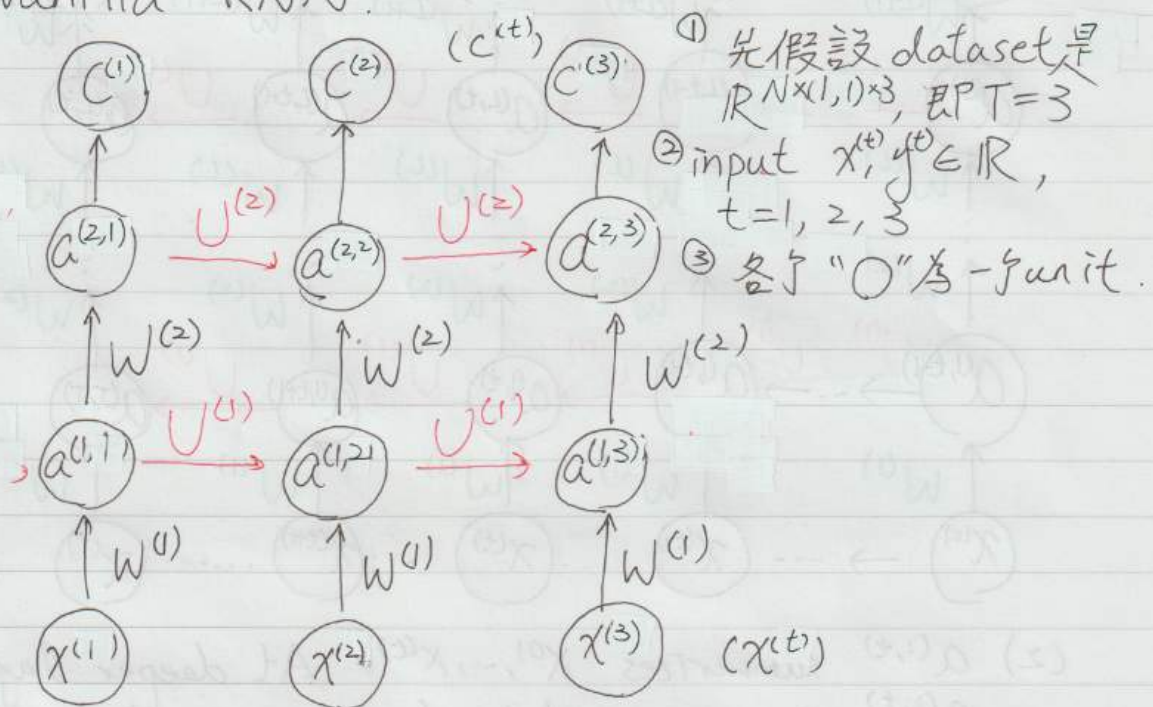 vanilla RNN.
C^(1) C^(2) (C^(t)) C^(3)
① 先假設 dataset是
ℝ^N×(1,1)×3, 即T=3
② input x^(t), y^(t) ∈ ℝ,
t=1, 2, 3
③ 各个 "O"為一个unit.
a^(2,1) U^(2) a^(2,2) U^(2) a^(2,3)
W^(2) W^(2) W^(2)
a^(1,1) U^(1) a^(1,2) U^(1) a^(1,3)
W^(1) W^(1) W^(1)
x^(1) x^(2) x^(3) (x^(t))